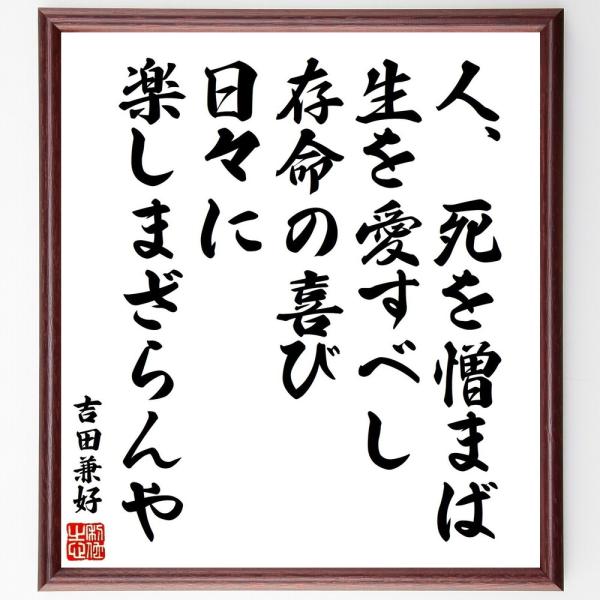 人、死を憎まば
生を愛すべし
存命の喜び
日々に
楽しまざらんや
吉田兼好